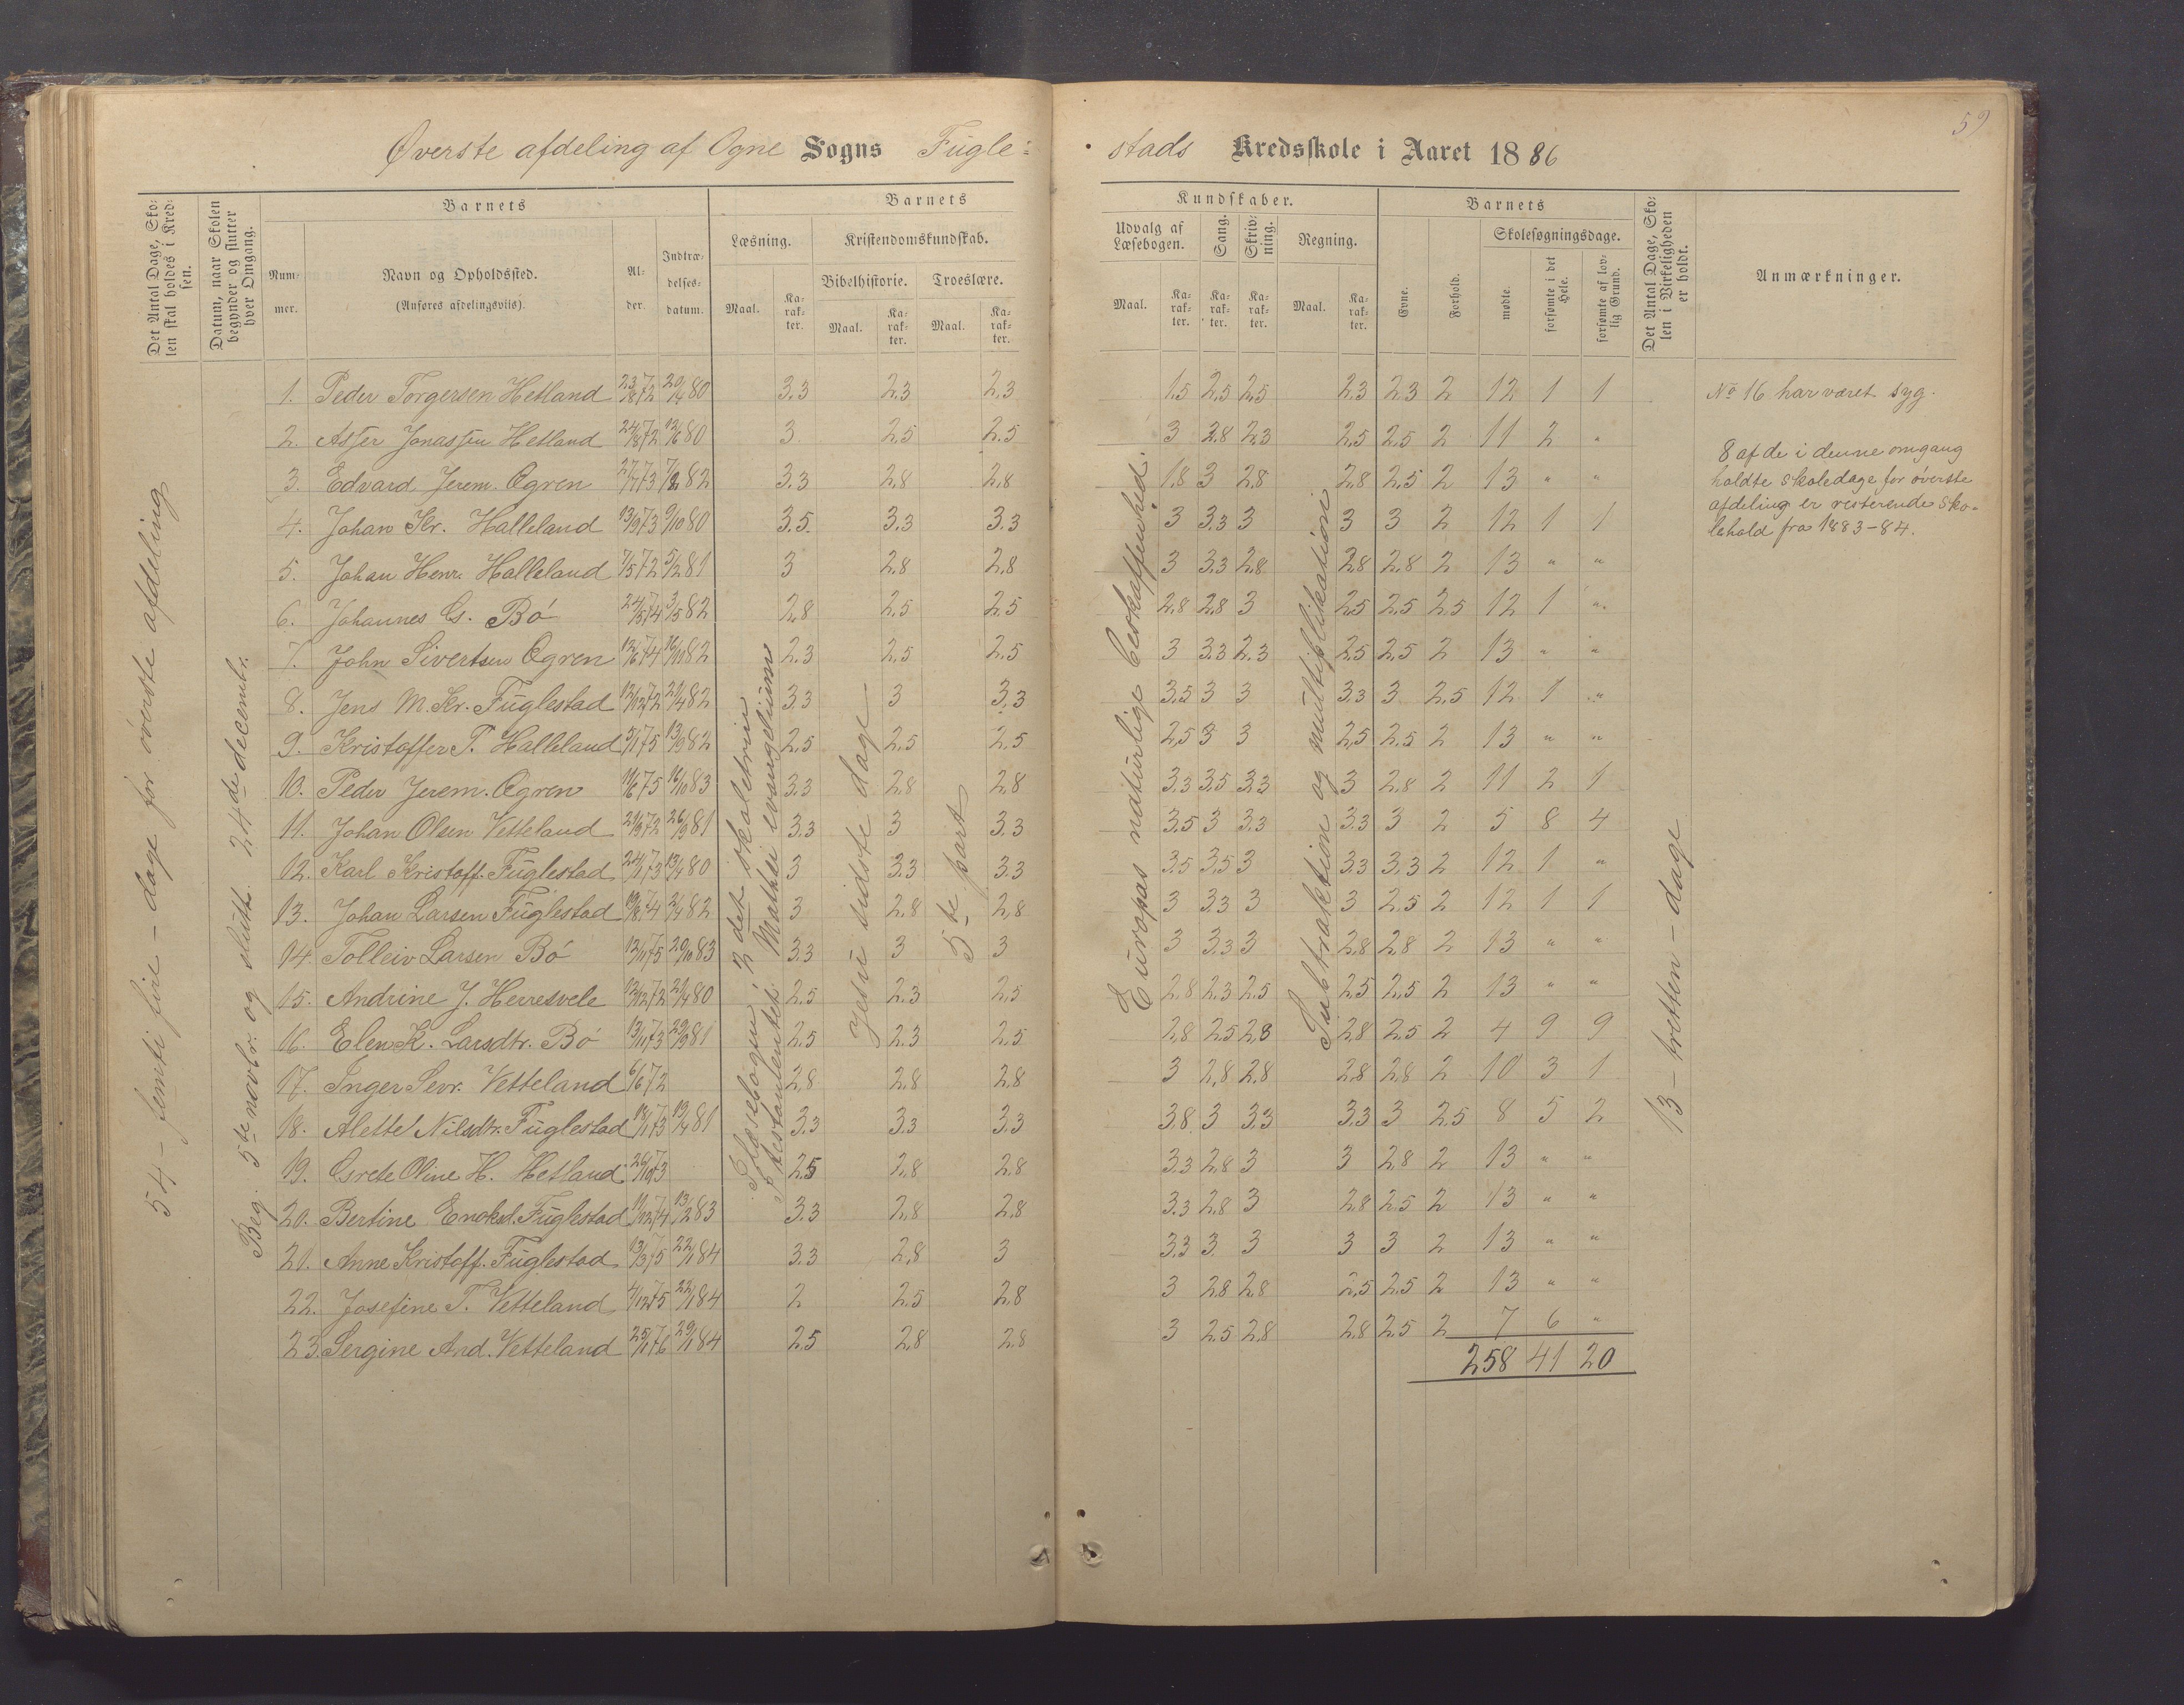 59
Øverste afdeling af Ogne Sogns Fugle- stads Kredsskole i Aaret 1886
Det Antal Dage, Skolen skal holdes i Kredsen.
Datum, naar Skolen begynder og slutter hver Omgang.
Barnets
Nummer.
Navn og Opholdssted.
(Anføres afdelingsviis).
Alder.
Indtrædelsesdatum.
Barnets Kundskaber.
Læsning.
Maal. Karakter.
Kristendomskundskab.
Bibelhistorie. Troeslære.
Maal. Karakter. Maal. Karakter.
Udvalg af Læsebogen.
Maal. Karakter.
Sang. Karakter.
Skrivning. Karakter.
Regning.
Maal. Karakter.
Barnets
Evne.
Forhold.
Skolesøgningsdage.
mødte.
forsømte i det Hele.
forsømte af lovlig Grund.
Det Antal Dage, Skolen i Virkeligheden er holdt.
Anmærkninger.
54 - femti fire - dage for øverste afdeling
Beg. 5te novbr. og slutt. 24de decembr.
I læsebogen: 2det skoletrin
I testamentet: Matthæi evangelium
Jesu sidste dage
5-te part
Europas naturlige beskaffenhed.
Subtraktion og multiplikation
13 - tretten - dage
1. Peder Torgersen Hetland 23/8 72 20/4 80 3.3 2.3 2.3 1.5 2.5 2.5 2.3 2.3 2 12 1 1
2. Asser Jonassen Hetland 3 2.5 2.5 3 2.8 2.3 2.5 2.5 2 11 2 "
3. Edvard Jerem. Ogren 27/7 73 82 3.3 2.8 2.8 1.8 3 2.8 2.8 2.5 2 13 " "
4. Johan Kr. Halleland 13/9 73 9/10 80 3.5 3.3 3.3 3 3.3 3 3 3 2 12 1 1
5. Johan Henr. Halleland 7/5 72 5/2 81 3 2.8 2.8 3 3.3 2.8 2.8 2.8 2 13 " "
6. Johannes G. Bö 24/5 74 3/5 82 2.8 2.5 2.5 2.8 2.8 3 2.5 2.5 2.5 12 1 "
7. John Sivertsen Ogren 12/6 74 82 2.3 2.5 2.5 3 3.3 2.3 2.5 2.5 2 13 " "
8. Jens M. Kr. Fuglestad 12/12 72 21/4 82 3.3 3 3.3 3.5 3 3 3.3 3 2.5 12 1 "
9. Kristoffer T. Halleland 5/1 75 13/9 82 2.5 2.5 2.5 2.5 3 3 2.5 2.5 2 13 " "
10. Peder Jerem. Ogren 11/6 75 16/10 83 3.3 2.8 2.8 3.3 3.5 3.3 3 2.8 2 11 2 1
11. Johan Olsen Vetteland 21/9 72 26/9 81 3.3 3 3.3 3.5 3 3.3 3.3 3 2 5 8 4
12. Karl Kristoff. Fuglestad 24/1 73 13/4 80 3 3.3 3.3 3.5 3.5 3 3.3 3.3 2 12 1 "
13. Johan Larsen Fuglestad 19/8 74 21/4 82 3 2.8 2.8 3 3.3 3 3 2.5 2 12 1 1
14. Tolleiv Larsen Bö 12/11 75 29/10 83 3.3 3 3 3 3.3 3 2.8 2.8 2 13 " "
15. Andrine J. Herresvele 12/12 72 21/4 80 2.5 2.3 2.5 2.8 2.3 2.5 2.5 2.5 2 13 " "
16. Elen K. Larsdtr. Bö 13/11 73 29/9 81 2.5 2.3 2.5 2.8 2.5 2.8 2.8 2.5 2 4 9 9
17. Inger Sevr. Vetteland 6/6 72 2.8 2.8 2.8 3 2.8 2.8 2.8 2.8 2 10 3 1
18. Alette Nilsdtr. Fuglestad 18/1 73 19/4 81 3.3 3.3 3.3 3.8 3 3.3 3.3 3 2.5 8 5 2
19. Grete Oline H. Hetland 26/10 73 2.5 2.8 2.8 3.3 2.8 3 3 2.8 2 13 " "
20. Bertine Enoksd. Fuglestad 11/12 74 13/2 83 3.3 2.8 2.8 3.3 2.8 3 2.8 2.5 2 13 " "
21. Anne Kristoff. Fuglestad 13/3 75 22/1 84 3.3 2.8 3 3.3 3 3 3 3 2 13 " "
22. Josefine T. Vetteland 4/12 75 22/1 84 2 2.5 2.8 3 2.8 2.8 2.5 2.5 2 13 " "
23. Sergine And. Vetteland 25/1 76 29/1 84 2.5 2.8 2.8 3 2.5 2.8 2.8 2.5 2 7 6 "
258 41 20
No 16 har været syg.
8 af de i denne omgang
holdte skoledage for øverste
afdeling er resterende sko-
lehold fra 1883-84.